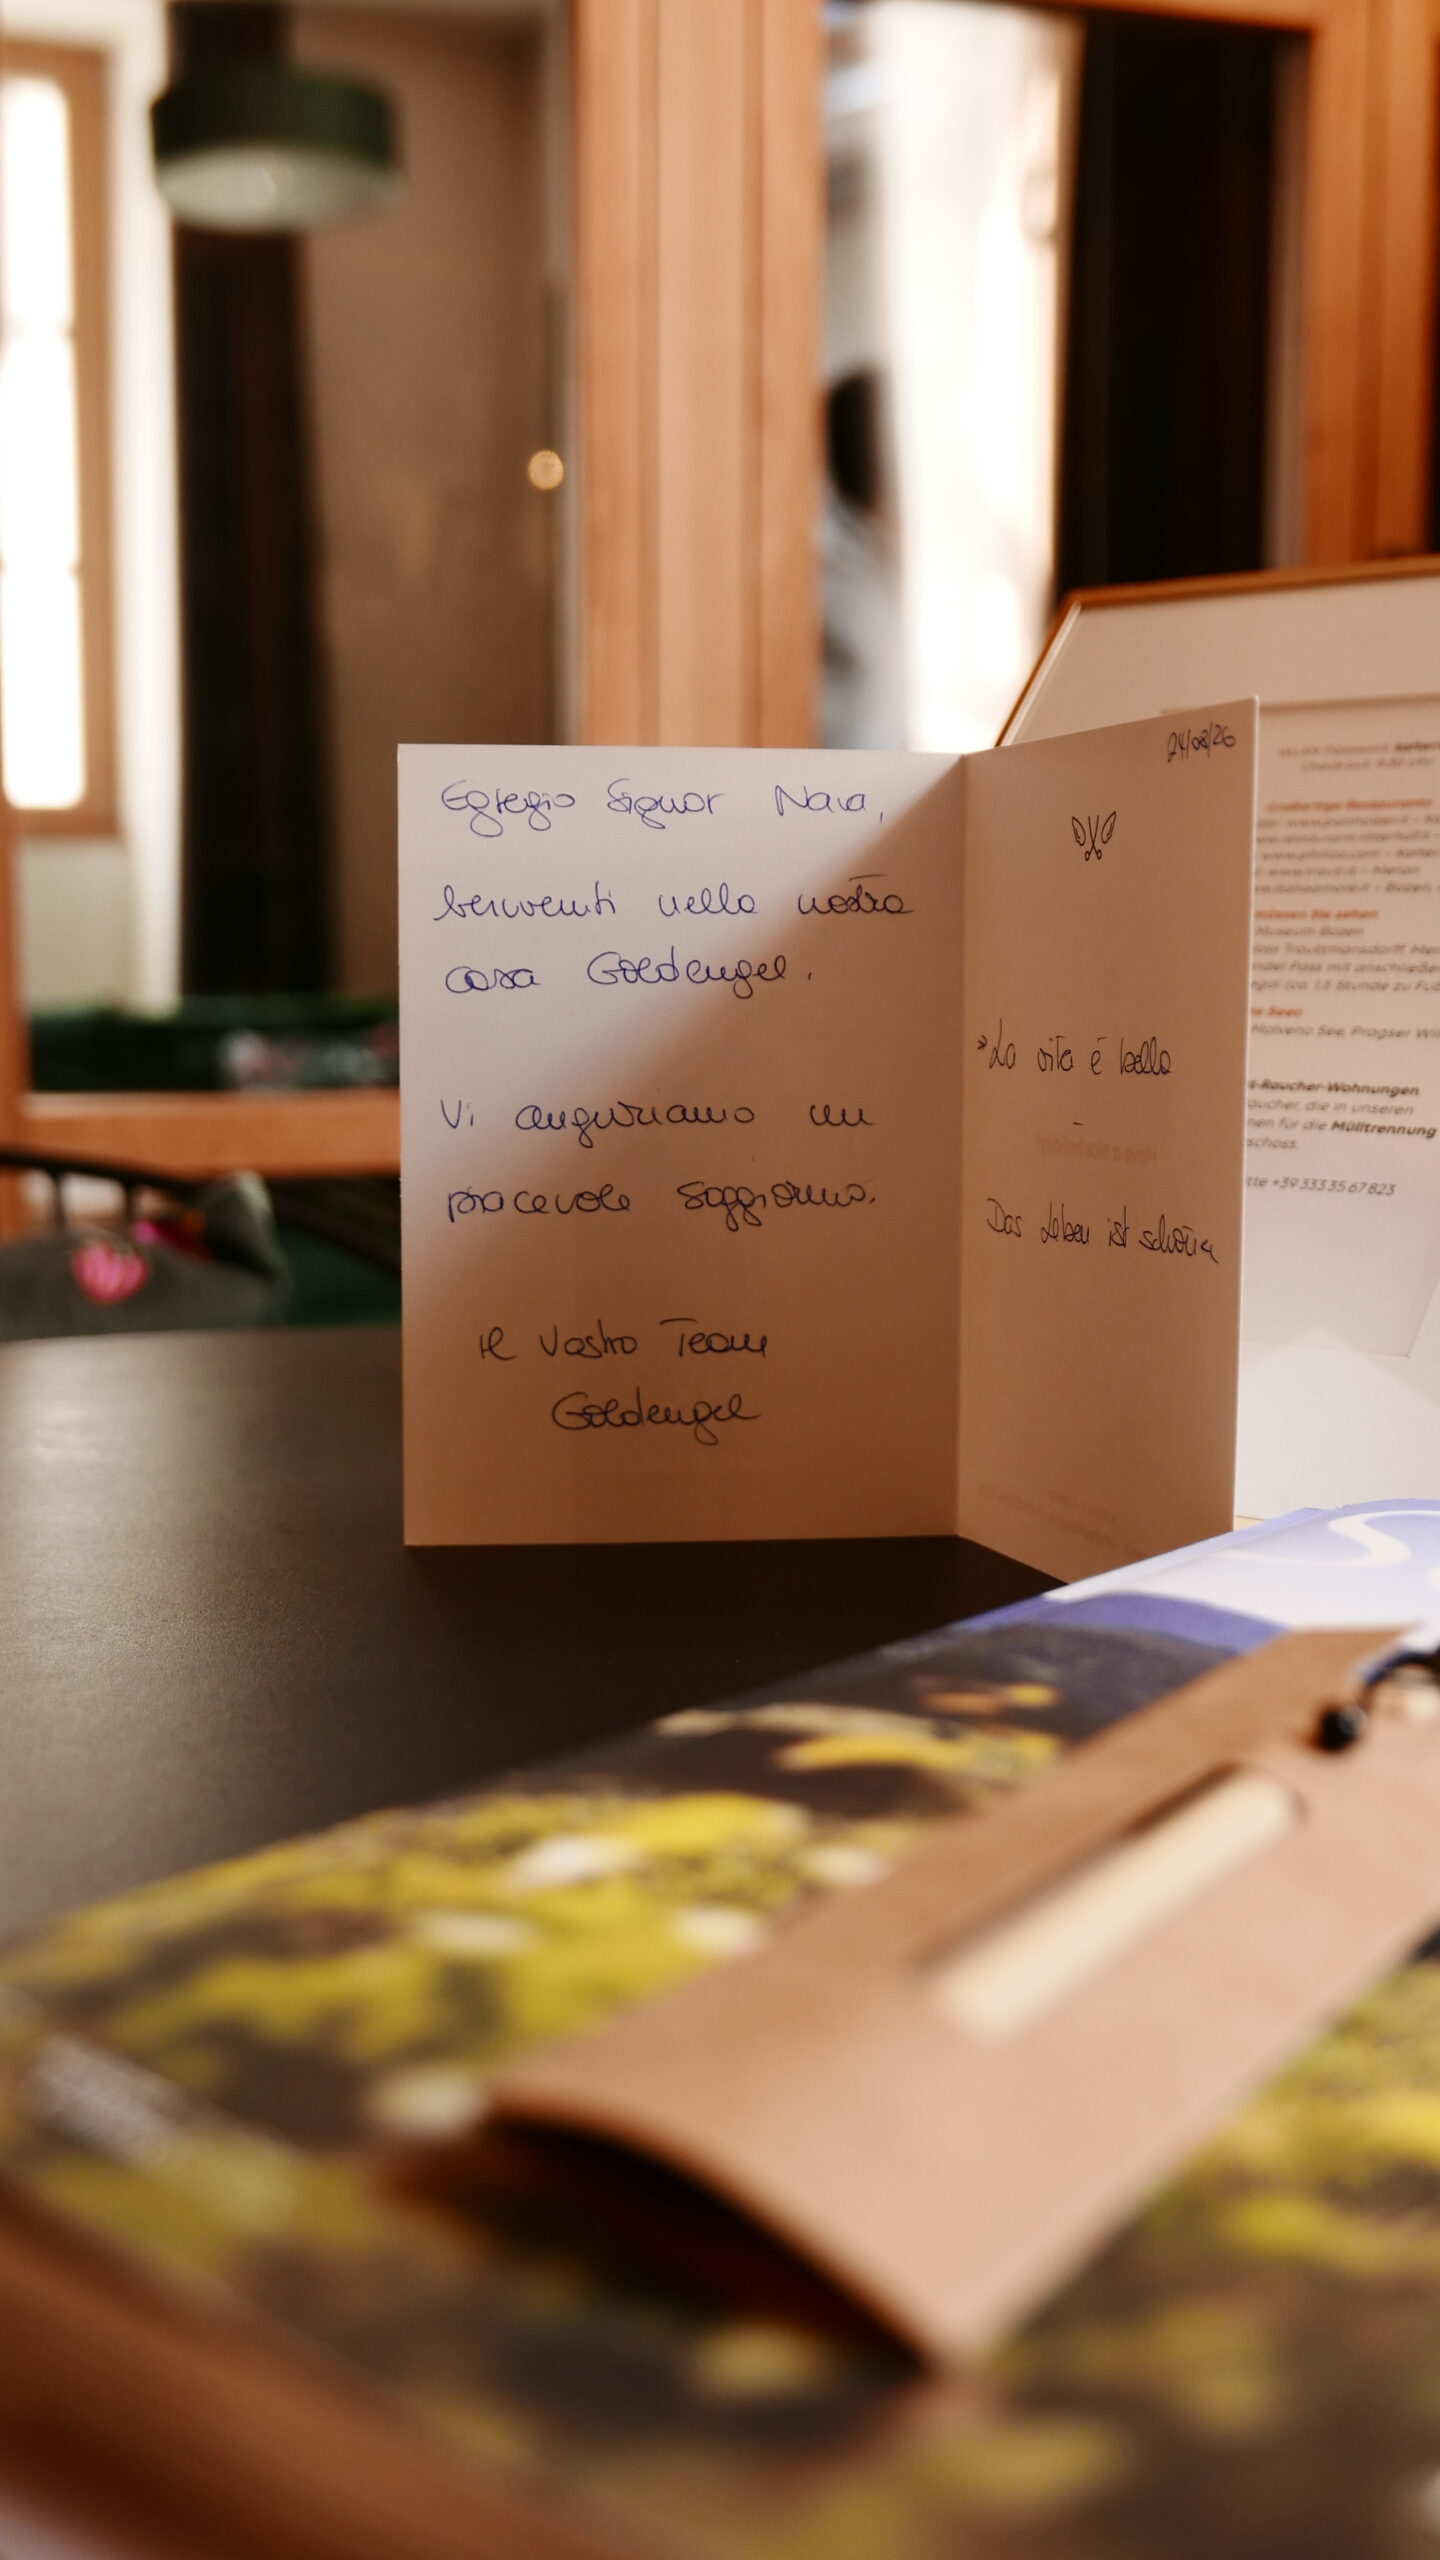 Egregio Signor Naia,
benvenuti nella nostra
casa Goldengel.
Vi auguriamo un
piacevole soggiorno.
Il Vostro Team
Goldengel
24/08/26
"La vita è bella
-
Have a nice holiday
Das Leben ist schön
Großartige Restaurants
– Meran
– Bozen,
müssen Sie sehen
Museum Bozen
Pass mit anschließe
(ca. 1,5 Stunde zu Fuß
Seen
Molveno See, Pragser Wi
-Raucher-Wohnungen
aucher, die in unseren
nen für die Mülltrennung
schoss.
tte +39 333 35 67 823